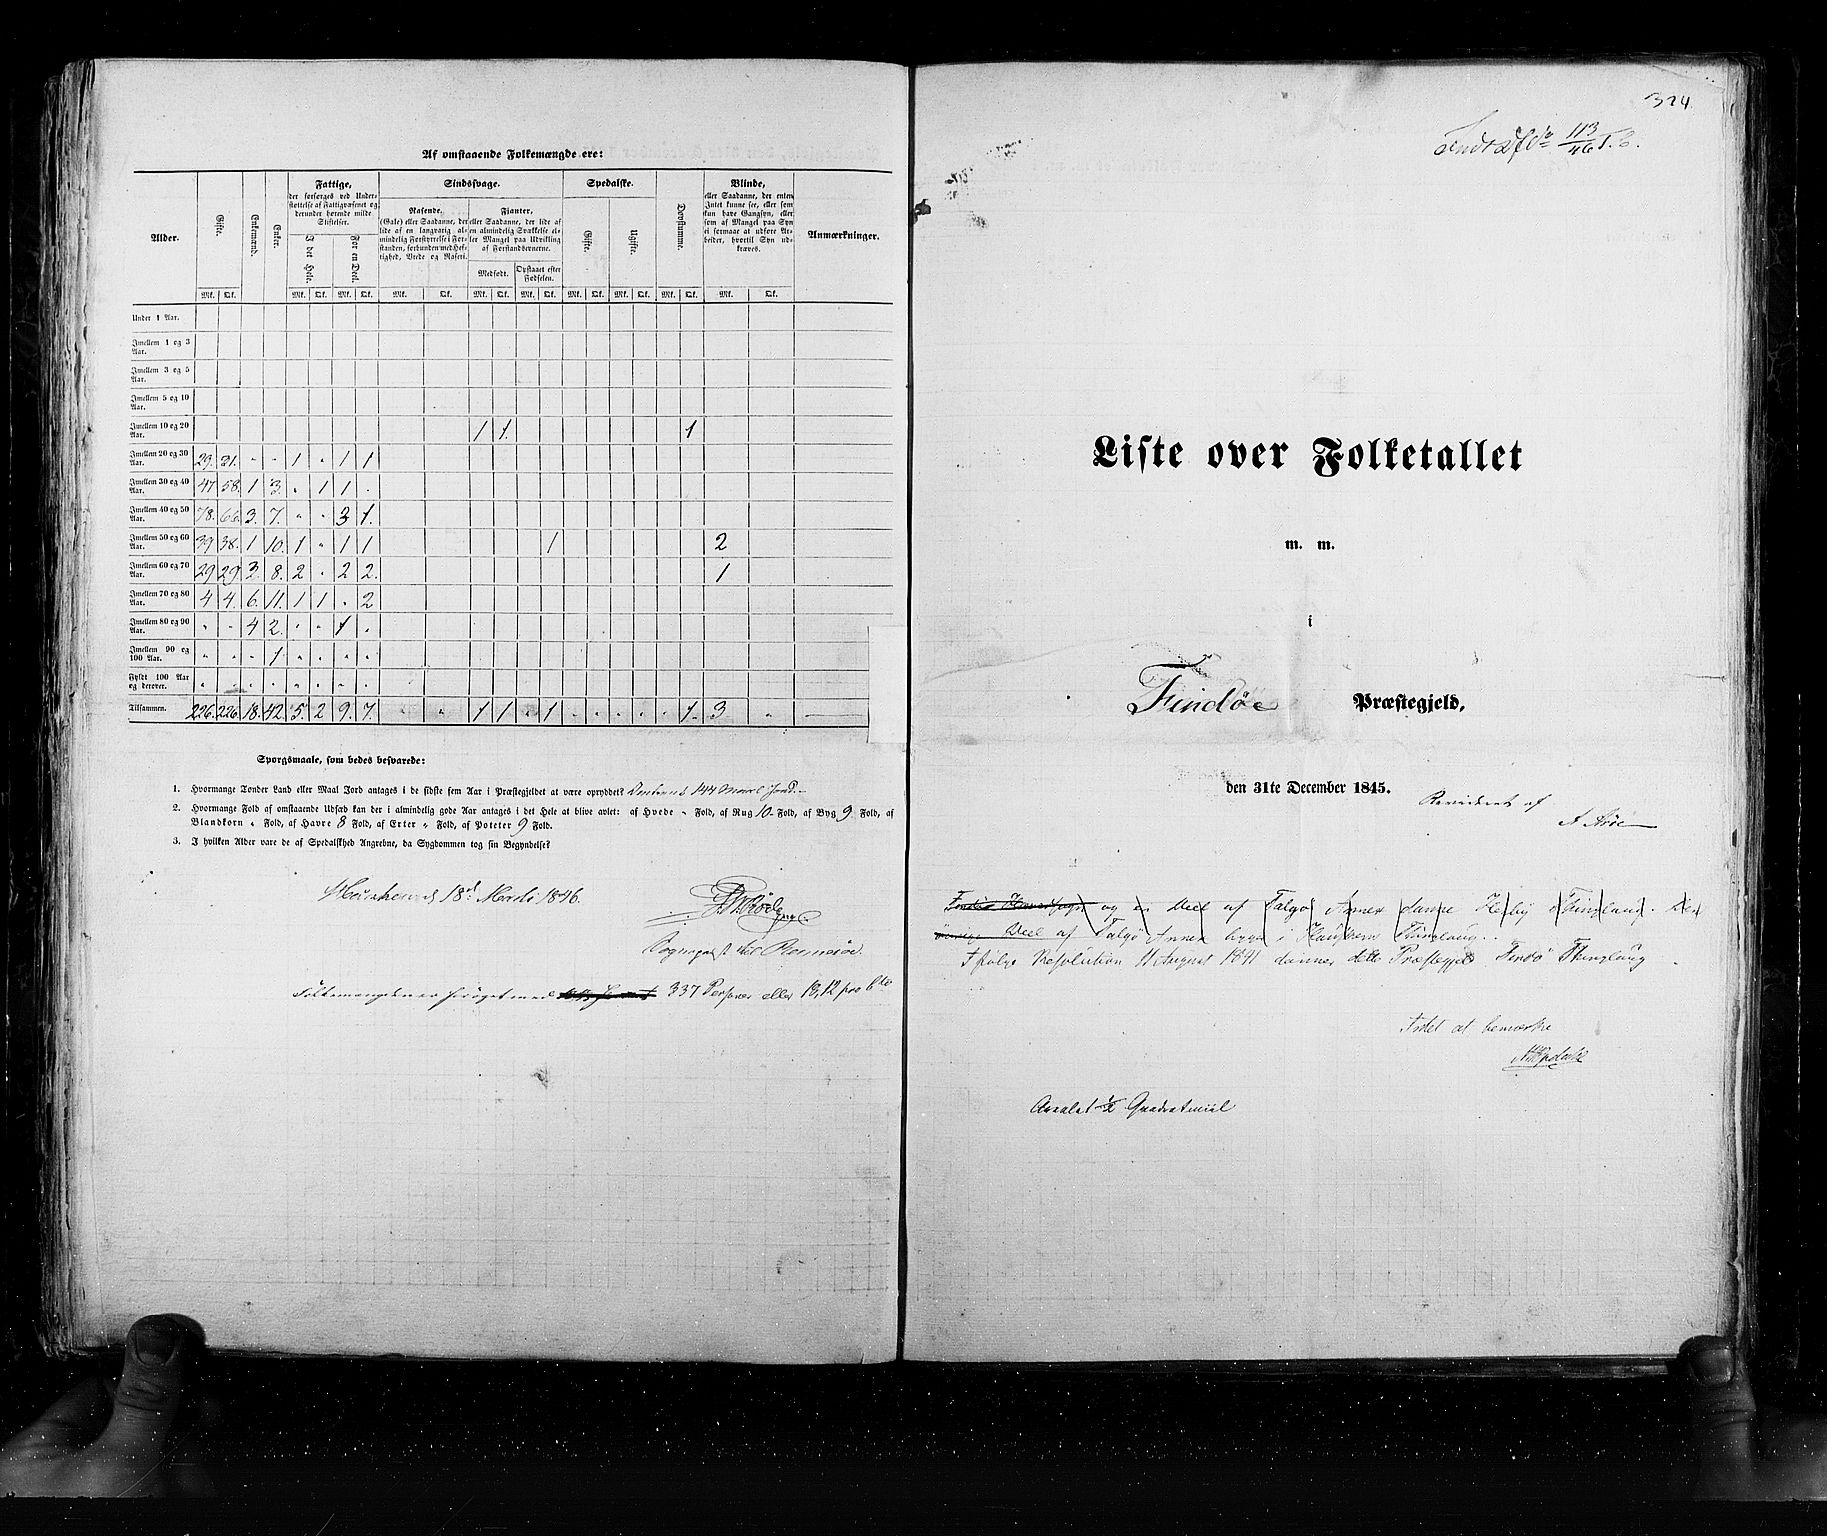 Af omstaaende Folkemængde ere:
Alder.
Gifte.
Enkemænd.
Enker.
Fattige,
der forsørges ved Under-
støttelse af Fattigvæsenet og
derunder hørende milde
Stiftelser.
I det Hele.
For en Deel.
Sindssvage.
Rasende.
(Gale) eller Saadanne, der
lide af en langvarig al-
mindelig Forstyrrelse i For-
standen, forbunden med Hef-
tighed, Vrede og Raseri.
Fjanter,
eller Saadanne, der lide af
en almindelig Svækkelse el-
ler Mangel paa Udvikling
af Forstandsevnerne.
Medfødt.
Opstaaet efter
Fødselen.
Spedalske.
Gifte.
Ugifte.
Døvstumme.
Blinde,
eller Saadanne, der enten
Intet kunne see, eller og
kun have Gangsyn, eller
som af Mangel paa Syn
ei formaae at udføre Ar-
beider, hvortil Syn ud-
kræves.
Anmærkninger.
Mk. Qk. Mk. Qk. Mk. Qk. Mk. Qk. Mk. Qk. Mk. Qk. Mk. Qk. Mk. Qk. Mk. Qk. Mk. Qk.
Under 1 Aar.
Imellem 1 og 3
Aar.
Imellem 3 og 5
Aar.
Imellem 5 og 10
Aar.
Imellem 10 og 20
Aar. 1 1. 1
Imellem 20 og 30
Aar. 29. 31. " " 1 " 1 1
Imellem 30 og 40
Aar. 47 58. 1 3. " 1 1 "
Imellem 40 og 50
Aar. 78. 66. 3. 7. " " 3 1.
Imellem 50 og 60
Aar. 39 38. 1 10. 1 " 1 1 1 2
Imellem 60 og 70
Aar. 29 29. 3. 8. 2 " 2 2. 1
Imellem 70 og 80
Aar. 4 4. 6. 11. 1 1 " 2
Imellem 80 og 90
Aar. " " 4 2. " " 1 "
Imellem 90 og
100 Aar. " " " 1 " " " "
Fyldt 100 Aar
og derover. " " " " " " " "
Tilsammen. 226. 226. 18. 42. 5. 2 9. 7. " " 1 1 " 1 " " " " " 1. 3 "
Spørgsmaale, som bedes besvarede:
1. Hvormange Tønder Land eller Maal Jord antages i de sidste fem Aar i Præstegjeldet at være opryddet? 144 Maal Jord.
2. Hvormange Fold af omstaaende Udsæd kan der i almindelig gode Aar antages i det Hele at blive avlet: af Hvede " Fold, af Rug 10 Fold, af Byg 9 Fold, af
Blandkorn " Fold, af Havre 8 Fold, af Erter " Fold, af Poteter 9 Fold.
3. I hvilken Alder vare de af Spedalskhed Angrebne, da Sygdommen tog sin Begyndelse?
18d 1846.
Sognepræst til Rennesøe.
Folkemængden er forøget med 337 Personer eller 13,12 pro Cto
324
113/46
Liste over Folketallet
m. m.
i
Findöe Præstegjeld,
den 31te December 1845.
Revideret af
A Aröe
Findö Hovedsogn og en Deel af Talgö Annex danne Hesby Thinglaug. Den
övrige Deel af Talgö Annex ligger i Thinglaug.
Ifölge Resolution 11 August 1841 danner dette Præstegjeld Findö Thinglaug
Intet at bemærke
Arealet 1/2 Quadratmiil